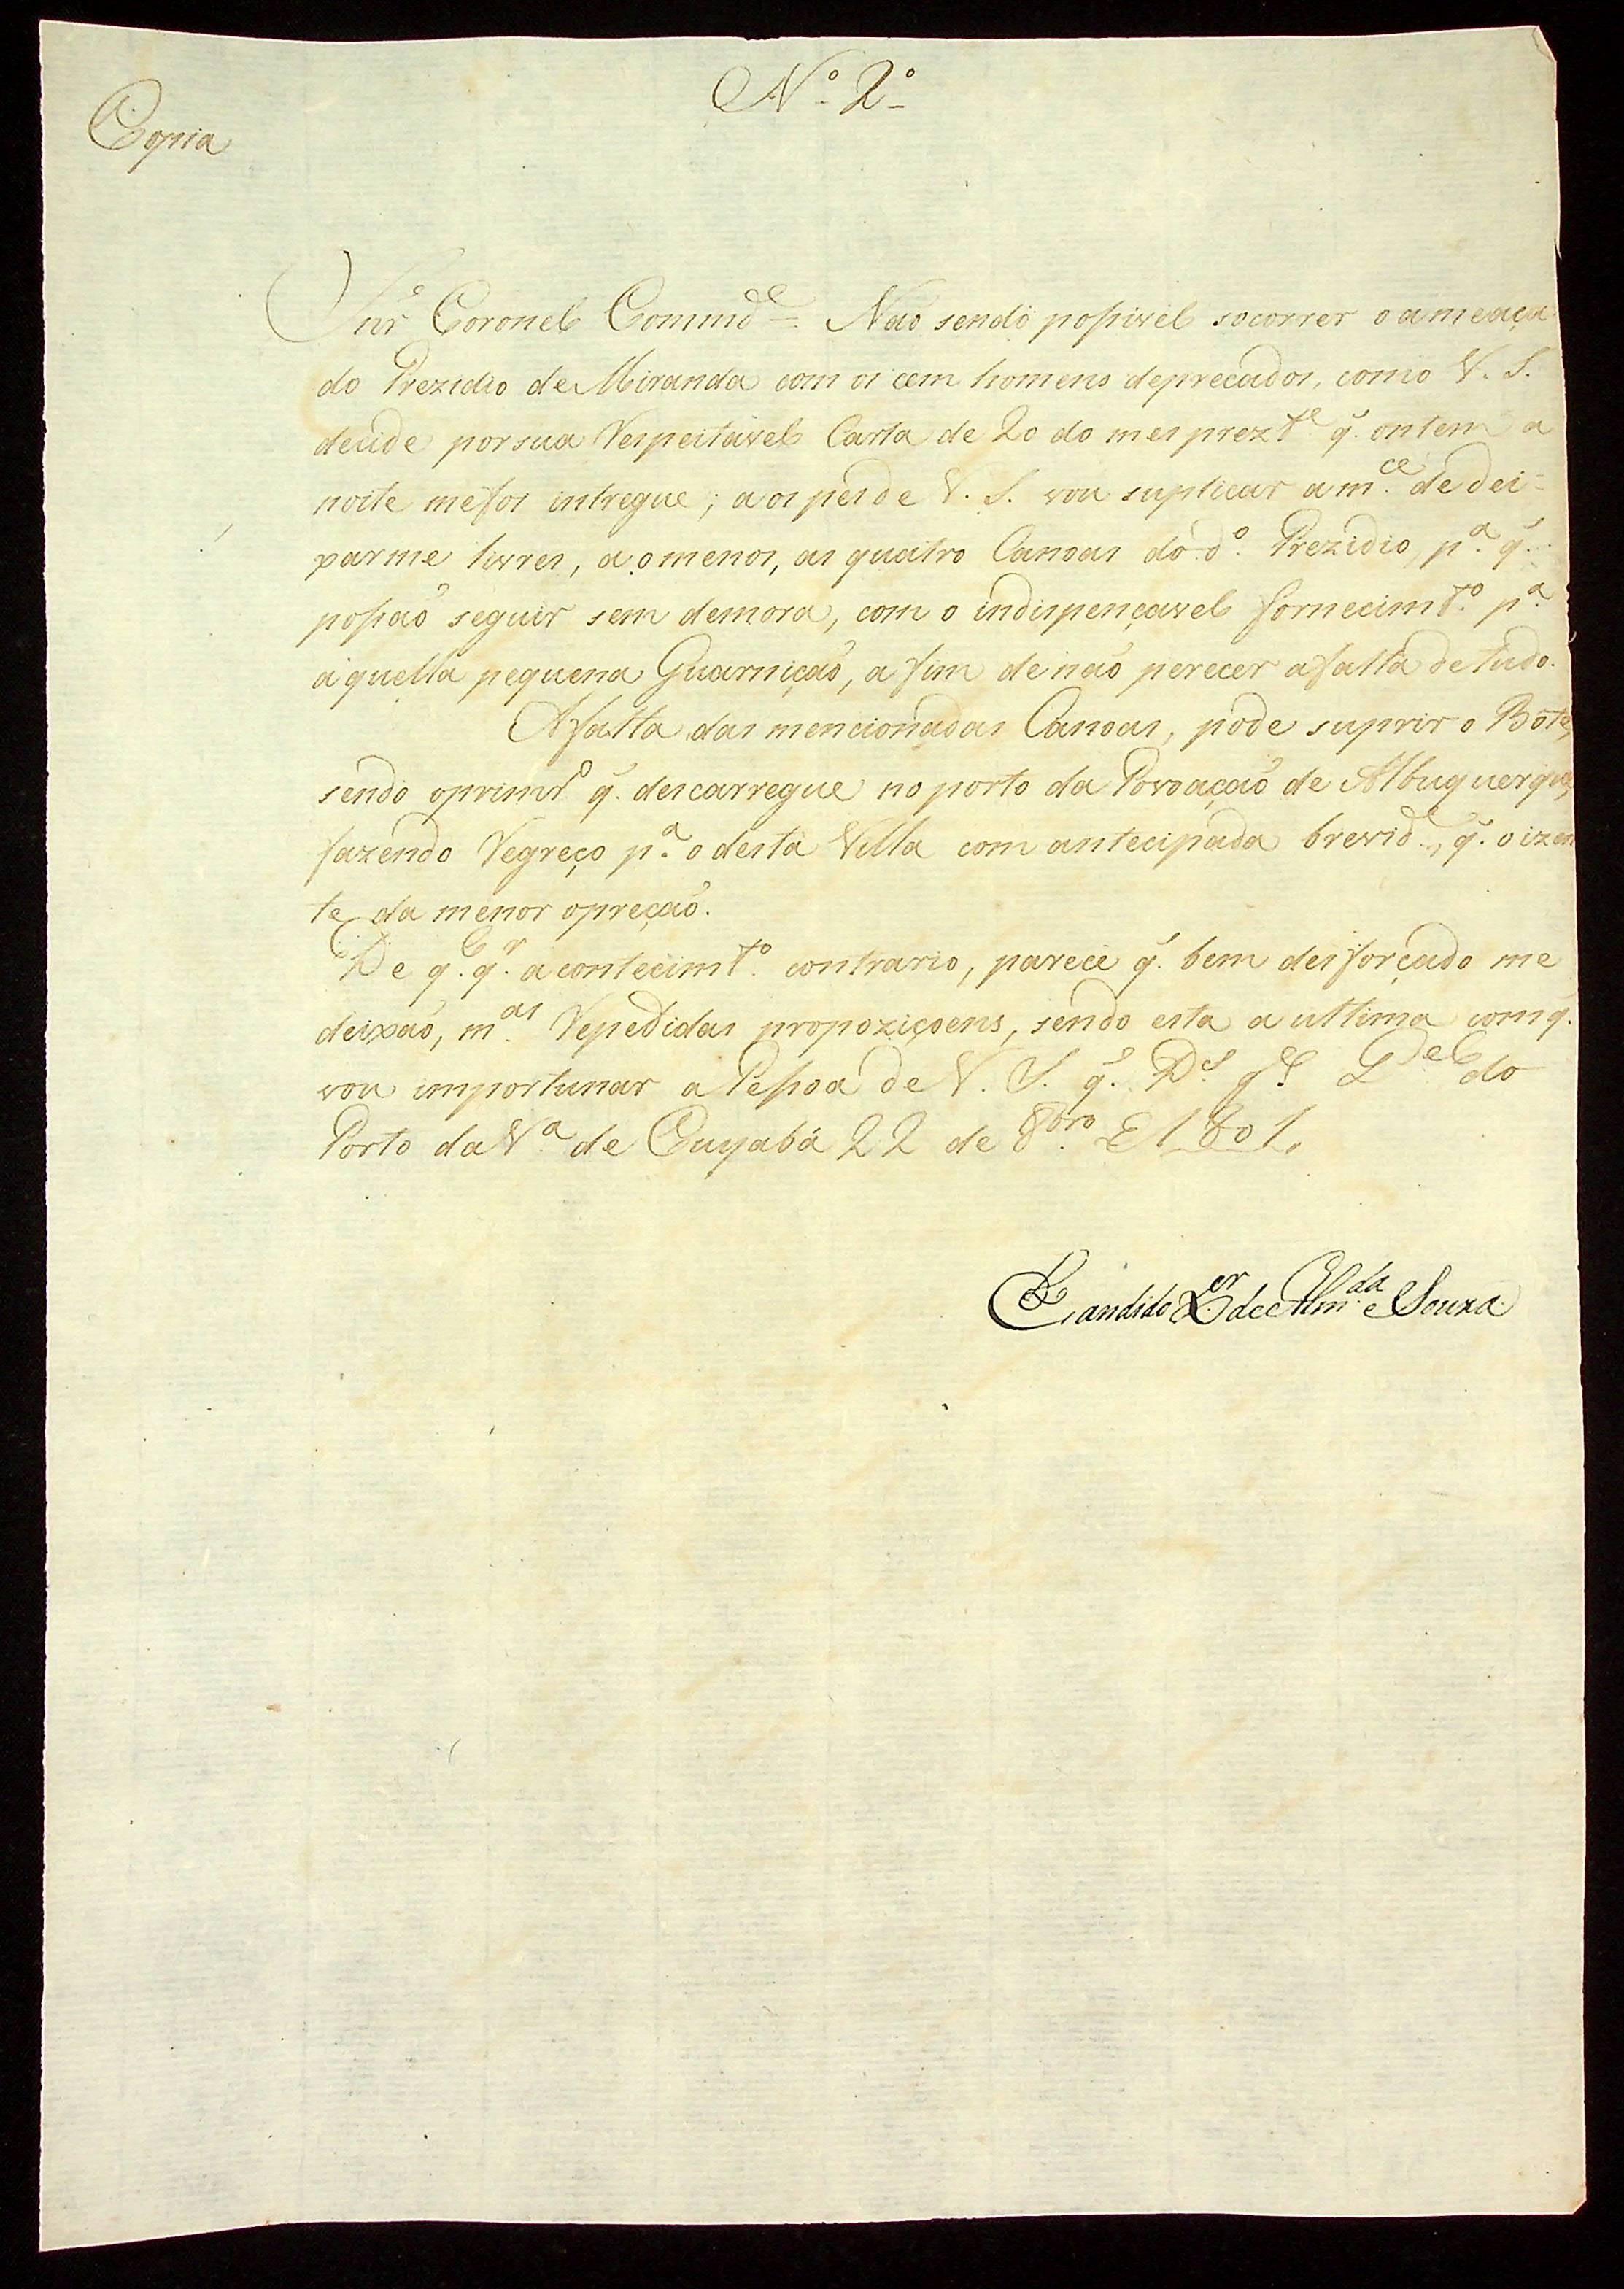 Nº 2º
Copia
Snr.ᵉ Coronel Comm.ᵈᵉ = Naõ sendo possivel socorrer o ameaça
do Prezidio de Miranda com os cem homens deprecados, como V. S.
decide por sua Respeitavel Carta de 20 do mes prez.ᵗᵉ q̃. ontem a
noite me foi intregue; aos pes de V. S. vou suplicar a m.ᶜᵉ de dei=
xarme livres, ao menos, as quatro Canoas do d.º Prezidio, p.ª q̃.
possaõ seguir sem demora, com o indispençavel fornecim.ᵗº p.ª
aquella pequena Guarniçaõ, a fim de naõ perecer a falta de tudo.
A falta das mencionadas Canoas, pode suprir o Bote,
sendo o prim.ʳº q̃. descarregue no porto da Povoaçaõ de Albuquerque,
fazendo Regreço p.ª o desta Villa com antecipada brevid.ᵉ, q̃. o izen
te da menor opreçaõ.
De q.ˡ q.ʳ acontecim.ᵗº contrario, parece q̃. bem desforçado me
deixaõ, m.ᵃˢ Repedidas propoziçoens, sendo esta a ultima com q̃.
vou importunar a Pessoa de V. S. q̃. D.ˢ g.ᵉ Q.ᵉˡ do
Porto da V.ª de Cuyabá 22 de 8.ᵇʳᵒ de 1801.
Candido X.ᵉʳ de Alm.ᵈᵃ e Souza